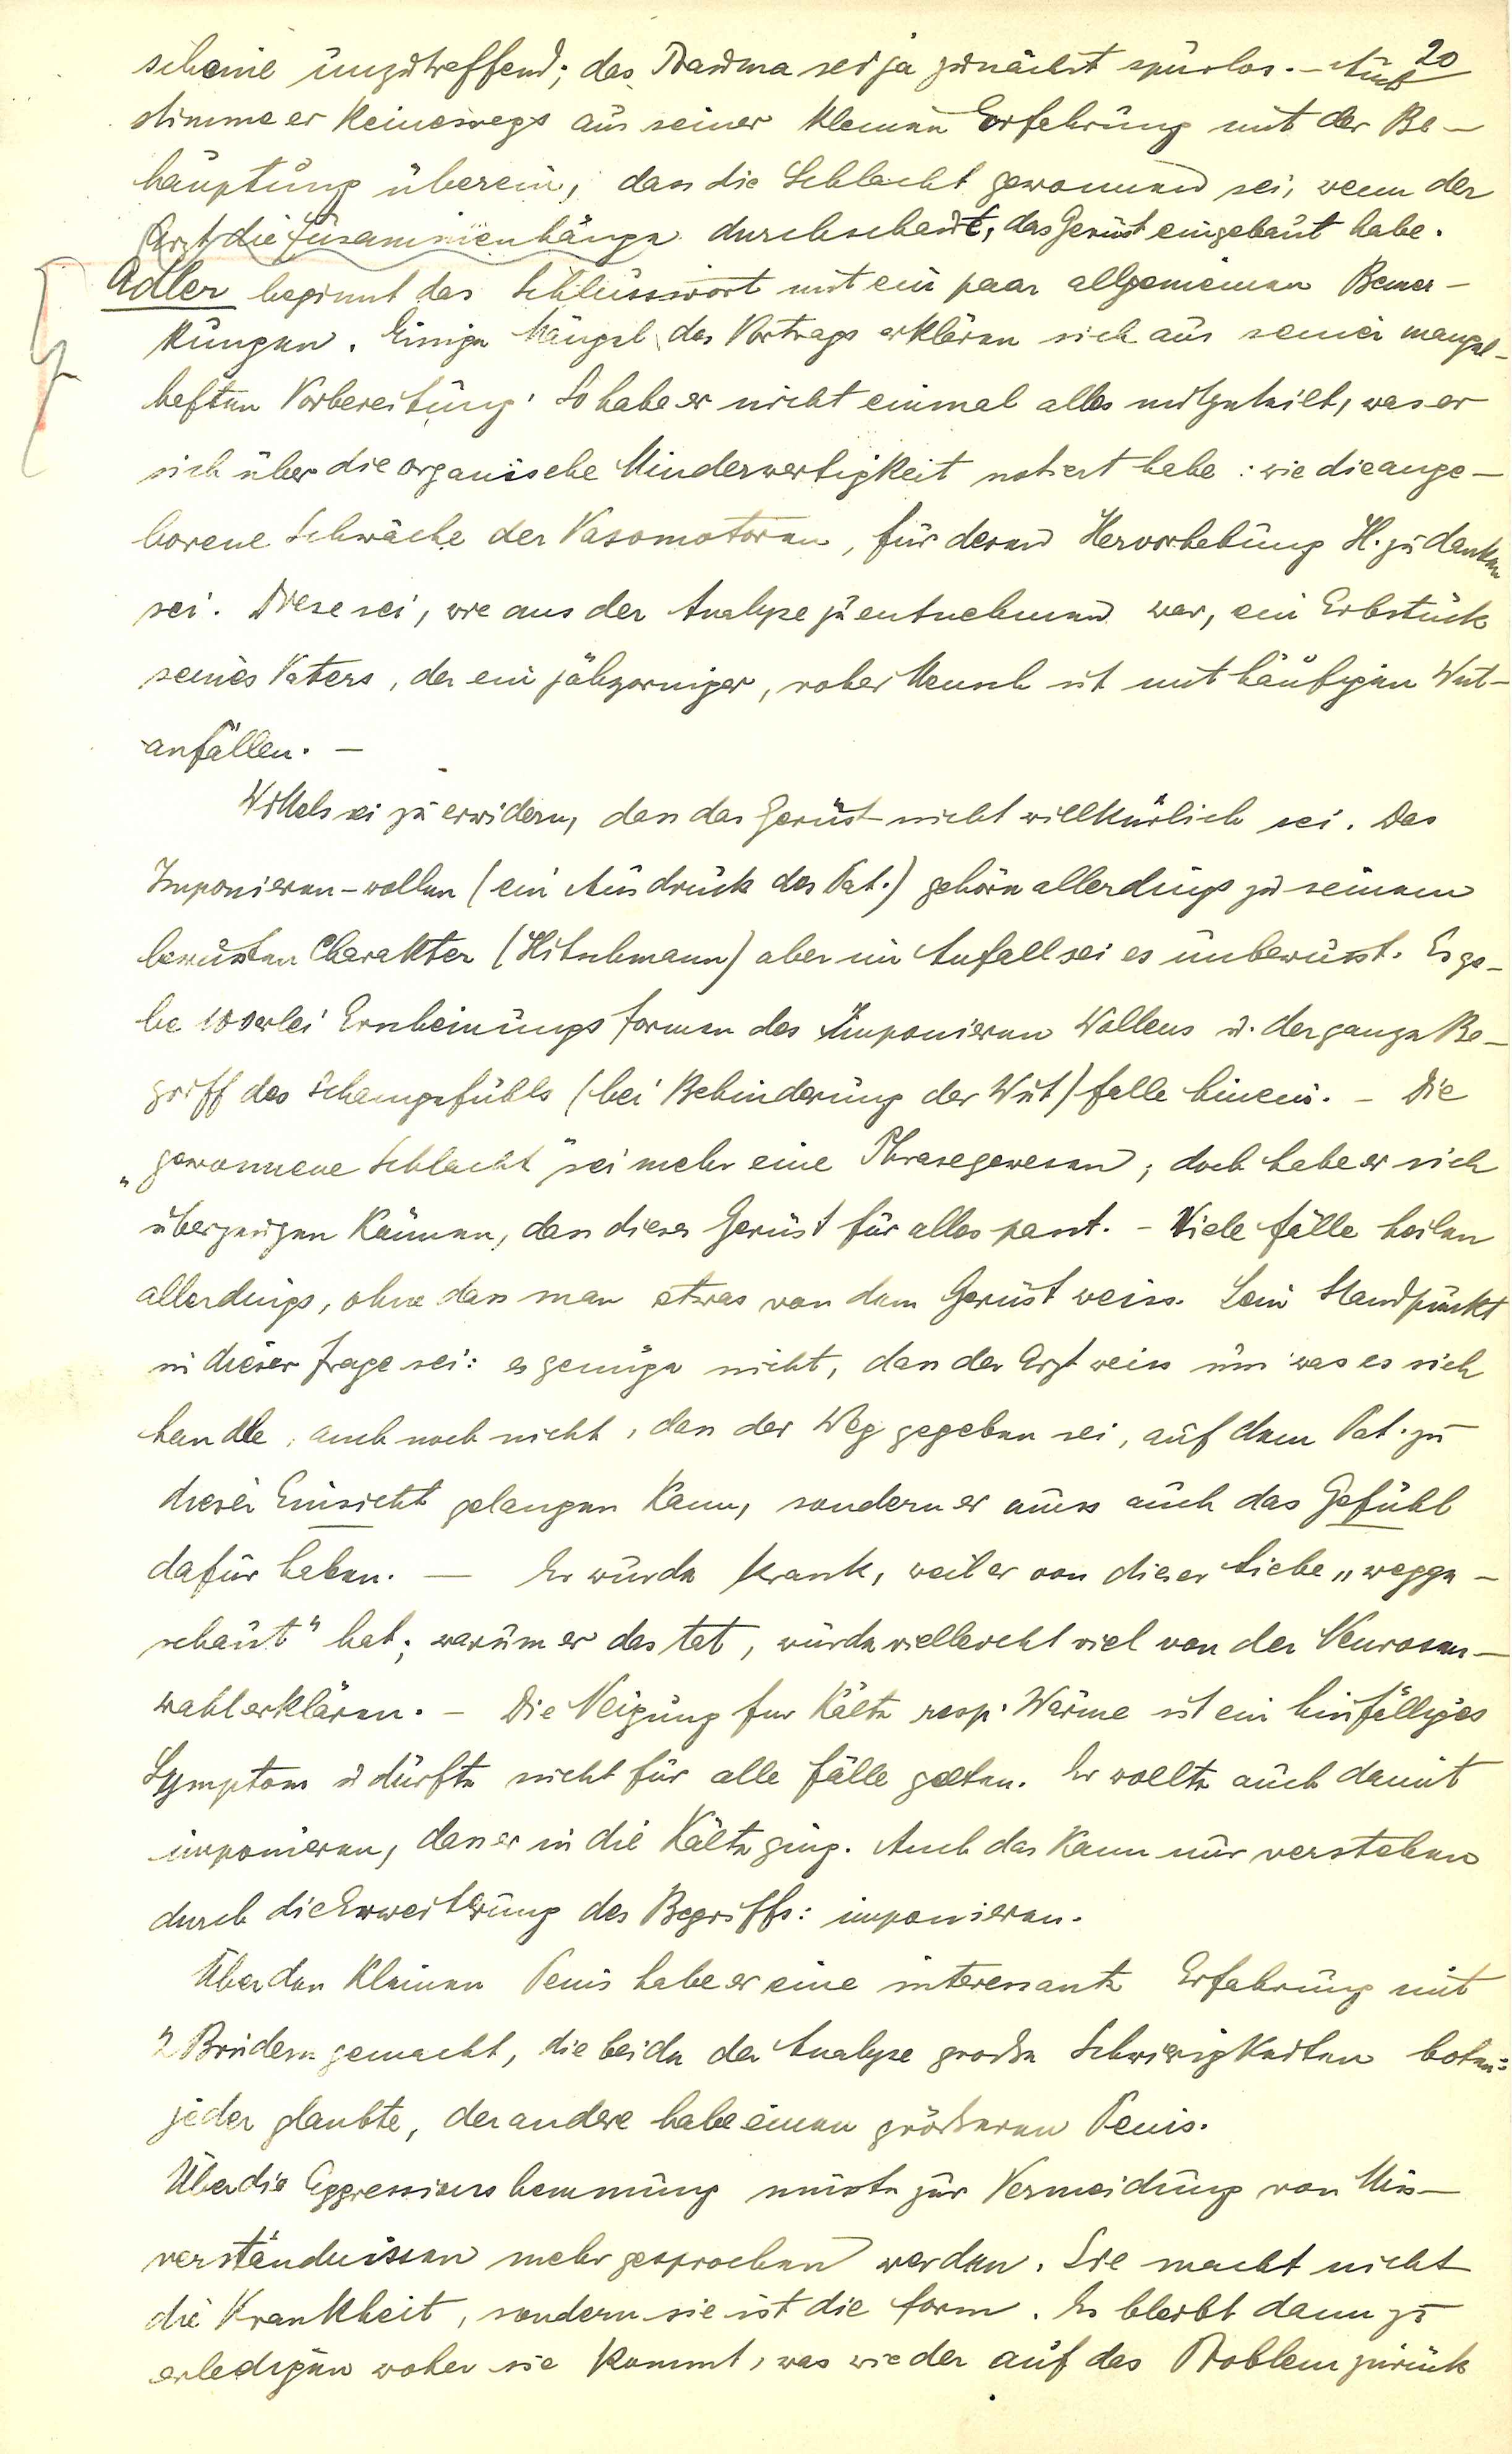 20
scheine unzutreffend; das Trauma sei ja zunächst spurlos. – Auch
stimme er keineswegs aus seiner kleinen Erfahrung mit der Be-
hauptung überein, dass die Schlacht gewonnen sei, wenn der
Arzt die Zusammenhänge durchschaut, das Gerüst eingebaut habe.
Adler beginnt das Schlusswort mit ein paar allgemeinen Bemer-
kungen. Einige Mängel des Vortrags erklären sich aus seiner mangel-
haften Vorbereitung. So habe er nicht einmal alles mitgeteilt, was er
sich über die organische Minderwertigkeit notiert habe: wie die ange-
borene Schwäche der Vasomotoren, für deren Hervorhebung H. zu danken
sei. Diese sei, wie aus der Analyse zu entnehmen war, ein Erbstück
seines Vaters, der ein jähzorniger, roher Mensch ist mit häufigen Wut-
anfällen. –
Wittels sei zu erwidern, dass das Gerüst nicht willkürlich sei. Das
Imponieren-wollen (ein Ausdruck des Pat.) gehöre allerdings zu seinem
bewussten Charakter (Hitschmann) aber im Anfall sei es unbewusst. Es ge-
be 100erlei Erscheinungsformen des Imponieren Wollens u. der ganze Be-
griff des Schamgefühls (bei Behinderung der Wut) falle hinein. – Die
„gewonnene Schlacht" sei mehr eine Phrase gewesen; doch habe er sich
überzeugen können, dass dieses Gerüst für alles passt. – Viele Fälle heilen
allerdings, ohne dass man etwas von dem Gerüst weiss. Sein Standpunkt
in dieser Frage sei: es genüge nicht, dass der Arzt weiss um was es sich
handle, auch noch nicht, dass der Weg gegeben sei, auf dem Pat. zu
dieser Einsicht gelangen kann, sondern er muss auch das Gefühl
dafür haben. — Er wurde krank, weil er von dieser Liebe „wegge-
schaut" hat; warum er das tat, würde vielleicht viel von der Neurosen-
wahl erklären. – Die Neigung für Kälte resp. Wärme ist ein hinfälliges
Symptom u dürfte nicht für alle Fälle gelten. Er wollte auch damit
imponieren, dass er in die Kälte ging. Auch das kann nur verstehen
durch die Erweiterung des Begriffs: imponieren.
Über den kleinen Penis habe er eine interessante Erfahrung mit
2 Brüdern gemacht, die beide der Analyse große Schwierigkeiten boten:
jeder glaubte, der andere habe einen größeren Penis.
Über die Aggressionshemmung müsste zur Vermeidung von Miss-
verständnissen mehr gesprochen werden. Sie macht nicht
die Krankheit, sondern sie ist die Form. Es bleibt dann zu
erledigen woher sie kommt, was wieder auf das Problem zurück